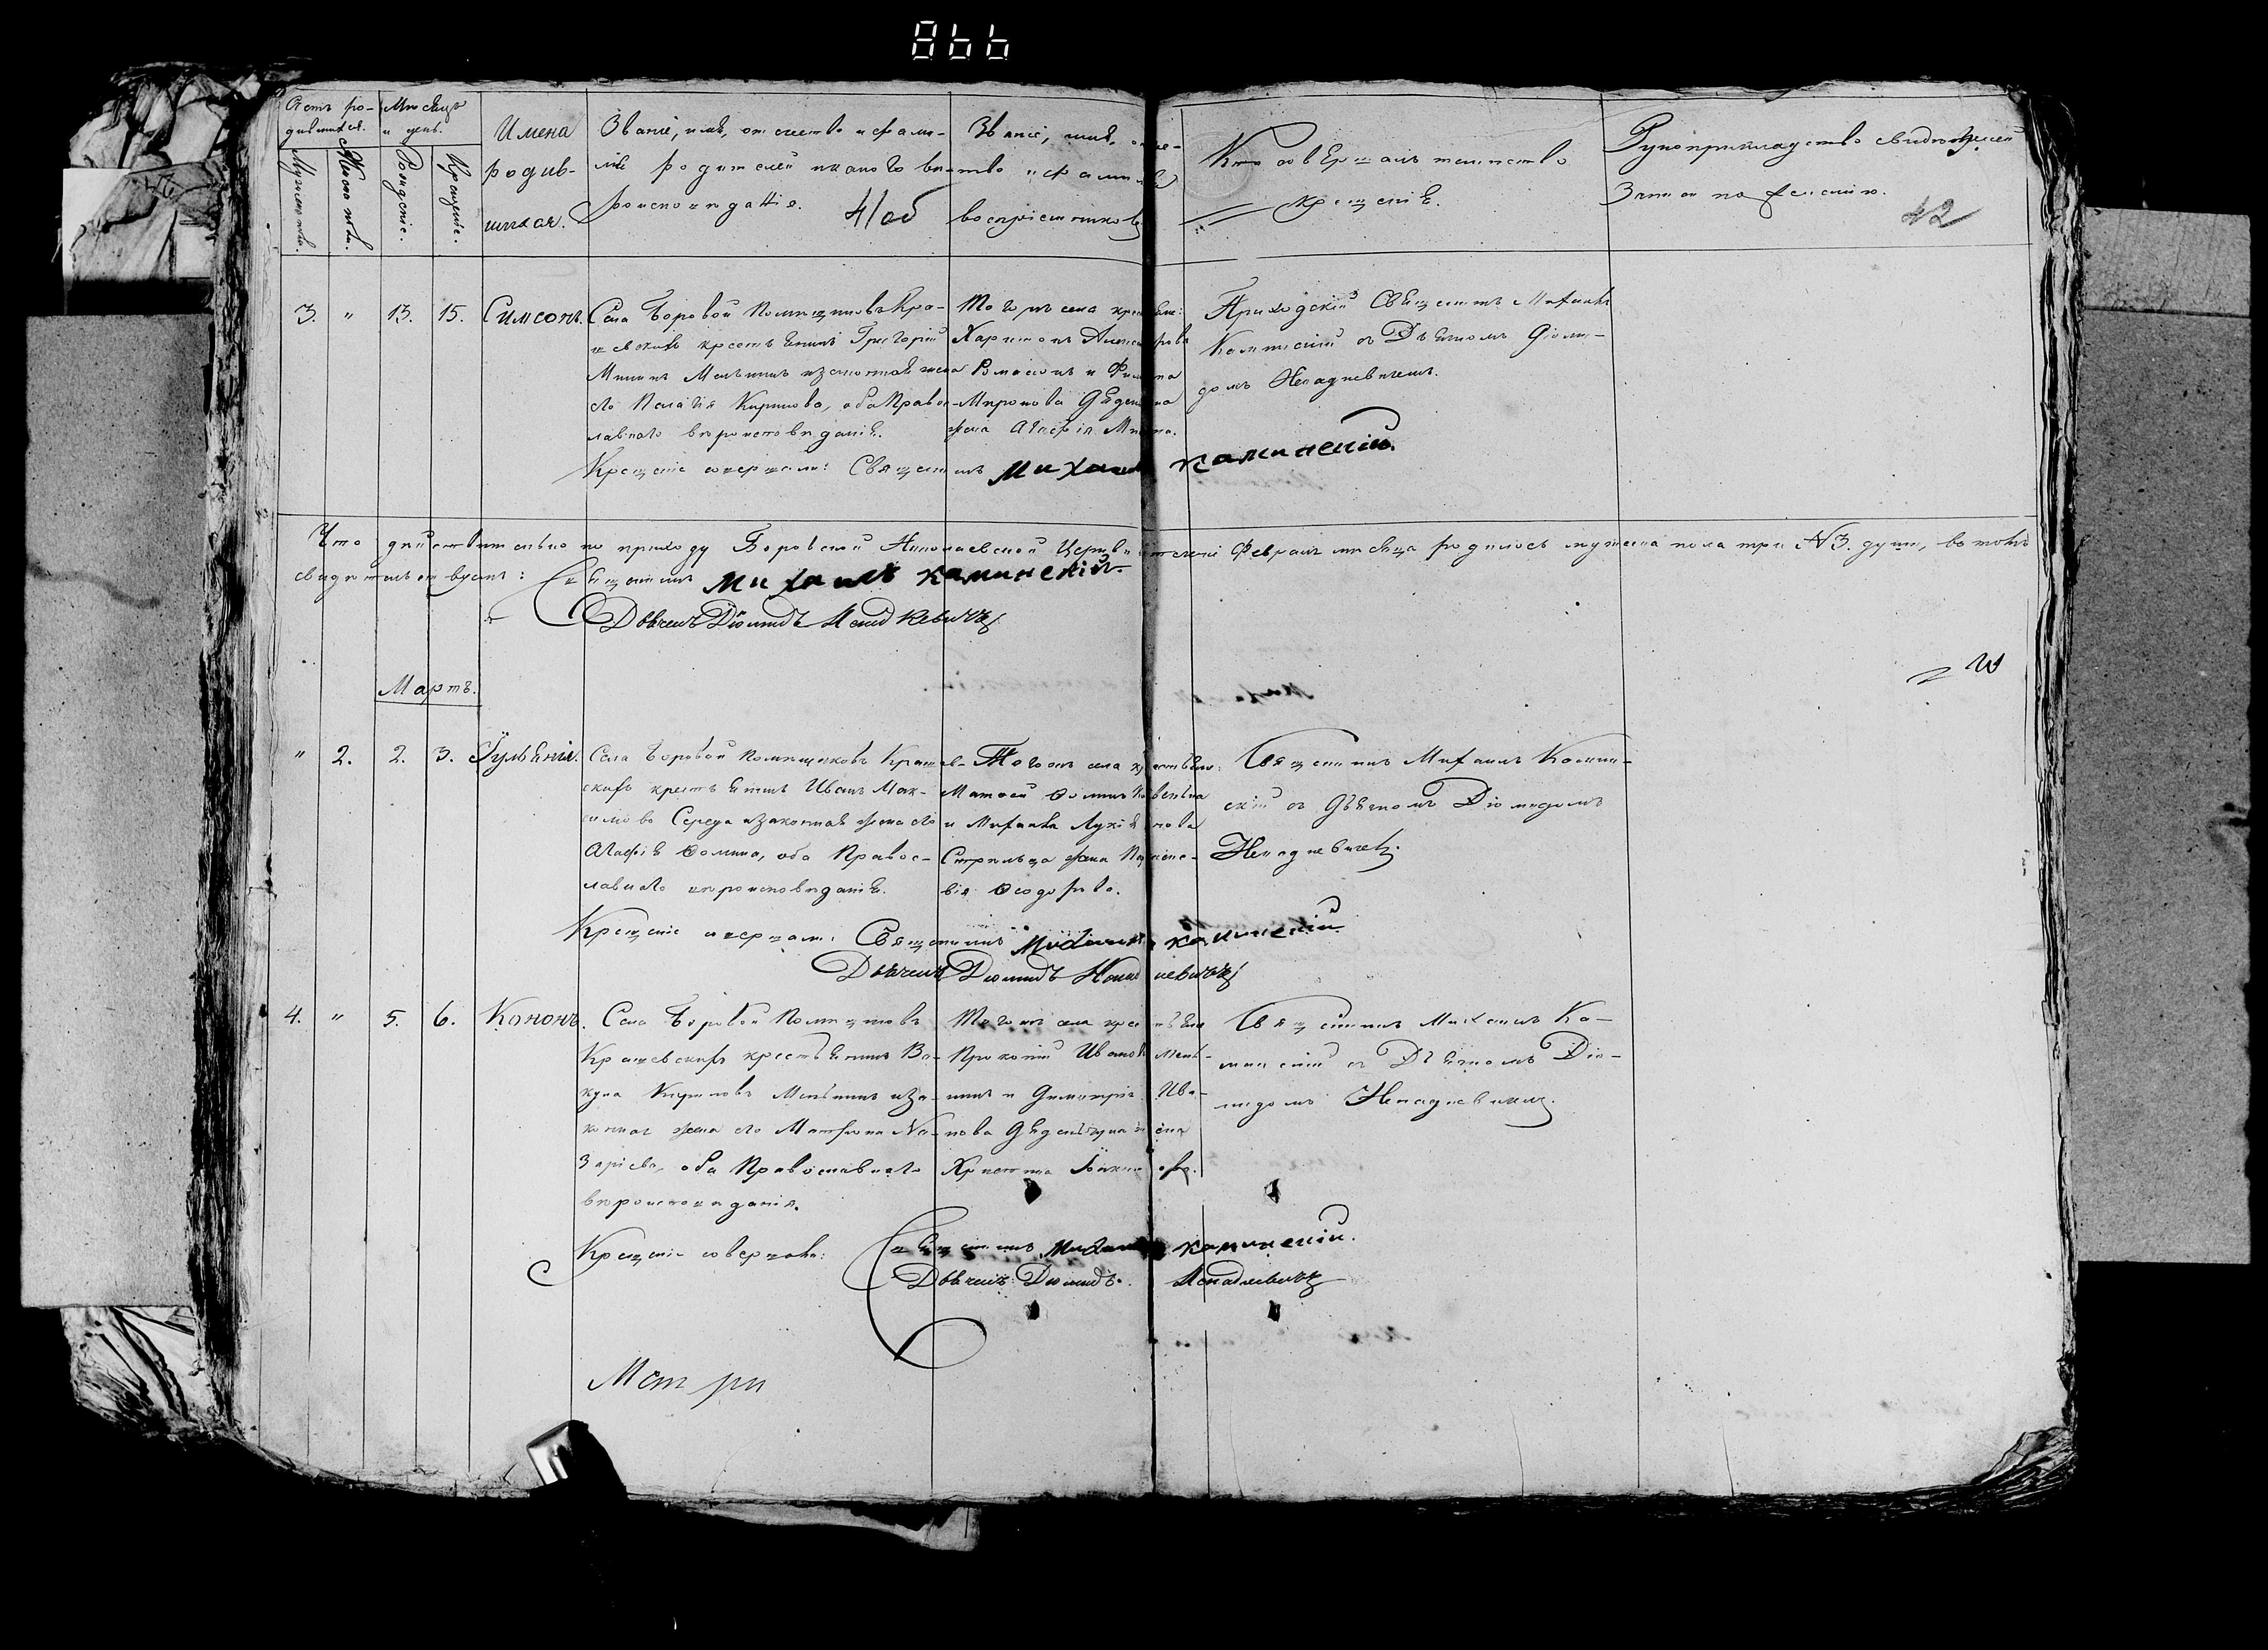 866
Счетъ ро-
дившихся.
Мужеска пола.
Женска пола.
Мѣсяцъ
и день.
Рожденіе.
Крещеніе.
Имена
родив-
шихся.
Званіе, имя, отчество и фами-
лія родителей и какого вѣ-
роисповѣданія.
41 об
Званіе, имя, отче-
ство и фамилія
воспріемниковъ
Кто совершалъ таинство
крещенія.
Рукоприкладство свидѣтелей
записи по желанію.
42
3. " 13. 15. Симеонъ.
Села Боровой помѣщиковъ Кра-
шевскихъ крестьянинъ Григорій
Мининъ Мельникъ и законная жена
его Пелагія Кирилова, оба Правос-
лавнаго вѣроисповѣданія.
Того жъ села крестьяне:
Харитонъ
Мирокова
жена Агафія
Приходскій Священникъ Михаилъ
Каминскій съ Дьячкомъ Діоми-
домъ Ненадкевичемъ.
Крещеніе совершали: Священникъ Михаилъ Каминскій
Что дѣйствительно по приходу Боровской Николаевской Церкви въ теченіи Февраля мѣсяца родилось мужеска пола три №3. души, въ томъ
свидѣтельствуемъ: Священникъ Михаилъ Каминскій
Дьячекъ Діомидъ Ненадкевичъ
Мартъ.
" 2. 2. 3. Іульянія.
Села Боровой помѣщиковъ Крашев-
скихъ крестьянинъ Иванъ Мак-
симовъ Середа и законная жена его
Агафія Ѳомина, оба Правос-
лавнаго вѣроисповѣданія.
Того жъ села крестьяне:
Матѳей Ѳоминъ
и Михаила Лукіянова
Стрѣльца жена Параске-
вія Ѳеодорова.
Священникъ Михаилъ Камин-
скій съ Дьячкомъ Діомидомъ
Ненадкевичемъ.
Крещеніе совершали: Священникъ Михаилъ Каминскій
Дьячекъ Діомидъ Ненадкевичъ
4. " 5. 6. Кононъ.
Села Боровой помѣщиковъ
Крашевскихъ крестьянинъ Ва-
кула Кириловъ Мельникъ и за-
конная жена его Матрона На-
заріева, оба Православнаго
вѣроисповѣданія.
Того жъ села крестьяне
Прокопій Ивановъ Мель-
никъ и Димитрія Ива-
нова жена
Христина
Священникъ Михаилъ Ка-
минскій съ Дьячкомъ Діо-
мидомъ Ненадкевичемъ.
Крещеніе совершали: Священникъ Михаилъ Каминскій.
Дьячекъ Діомидъ Ненадкевичъ